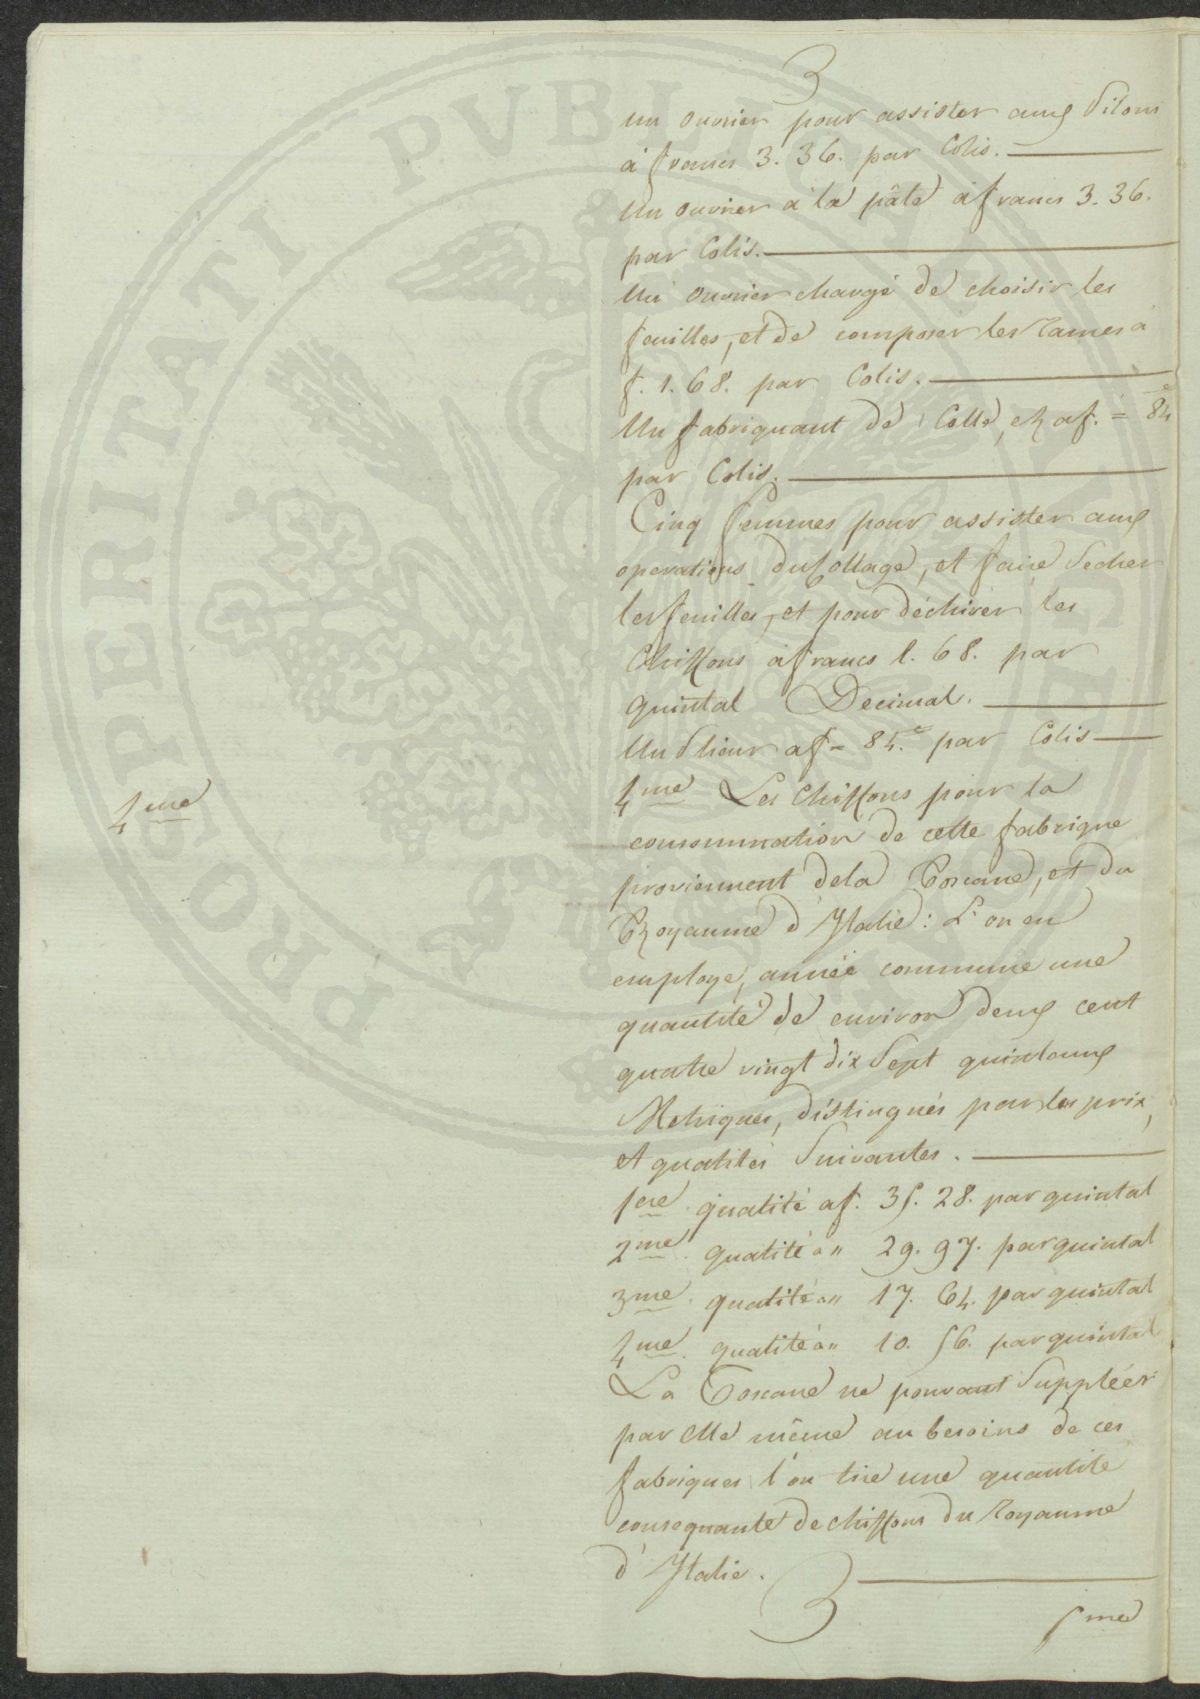 PROPERITATI PVBLICAE
3
un ouvrier pour assister aux Pilons
à francs 3. 36. par Colis.
Un ouvrier à la pâte à francs 3. 36.
par Colis.
Un ouvrier chargé de choisir les
feuilles, et de composer les rames à
f. 1. 68. par Colis.
Un fabriquant de Colle, à f. = 84
par Colis.
Cinq femmes pour assister aux
operations du Collage, et faire Secher
les feuilles, et pour déchirer les
Chiffons à francs 1. 68. par
quintal Decimal.
Un Lieur a f = 84.c par Colis
4me
4me Les Chiffons pour la
consummation de cette fabrique
proviennent de la Toscane, et du
Royaume d'Italie: L'on en
employe, année commune une
quantité de environ deux cent
quatre vingt dix Sept quintaux
Metriques, distingués par les prix,
et qualités Suivantes.
1ere qualité a f. 35. 28. par quintal
2me qualité a " 29. 97. par quintal
3me qualité a " 17. 64. par quintal
4me qualité a " 10. 56. par quintal
La Toscane ne pouvant Supplèér
par elle même au besoins de ces
fabriques l'on tire une quantité
consequante de chiffons du royaume
d'Italie.
3
5me